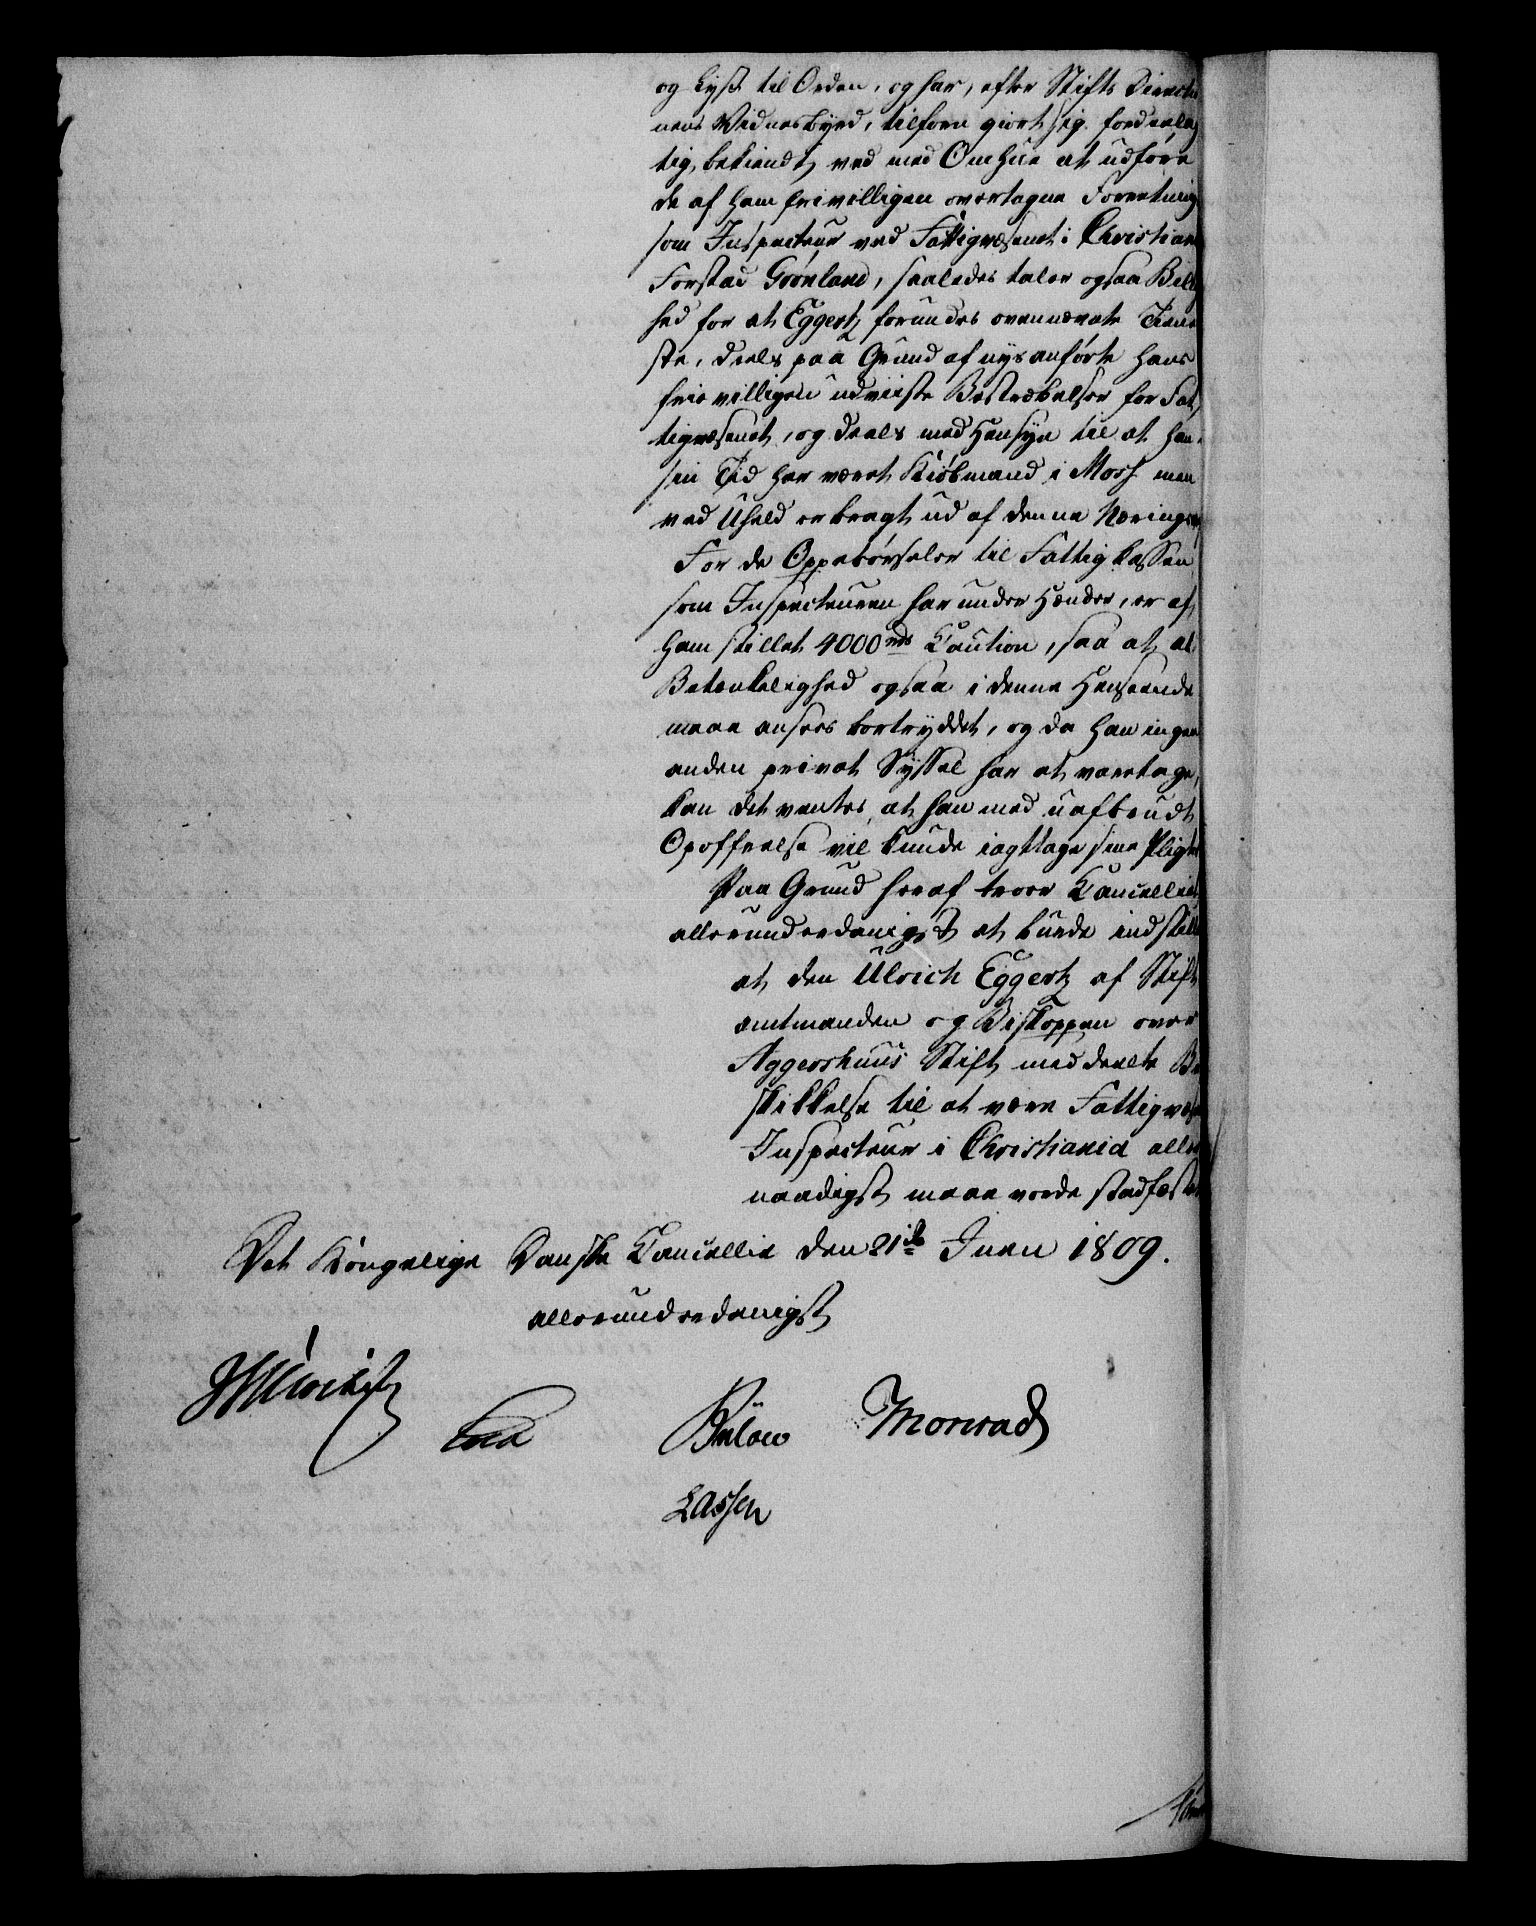 og Lyst til Orden, og har, efter Stifts Directio
nens Vidnesbyrd, tilforn giort sig fordeelag
tig bekiendt ved med Omhue at udføre
de af ham frivilligen overtagne Forretning
som Inspecteur ved Fattigvæsenet i Christian
Forstad Grønland, saaledes taler ogsaa Bill
hed for at Eggertz forundes ovennævnte Tiene
ste, deels paa Grund af nysanførte hans
frievilligen udviiste Bestræbelser for Fat
tigvæsenet, og deels med Hensyn til at han
sin Tid har været Kiøbmand i Moss men
ved Uheld er bragt ud af denne Nærings
For de Oppebørseler til Fattigkassen
som Inspecteuren har under Hænder, er af
ham stillet 4000 rds Caution, saa at al
Betænkelighed ogsaa i denne Henseende
maae ansees bortryddet, og da han ingen
anden privat Syssel har at varetage,
kan det ventes, at han med uafbrudt
Opoffrelse vil kunde iagttage sine Pligter
Paa Grund heraf troer Cancelliet
allerunderdanigst at burde indstille
at den Ulrich Eggertz af Stift
amtmanden og Biskoppen over
Aggershuus Stift meddeelte Be
skikkelse til at være Fattigvæs
Inspecteur i Christiania aller
naadigst maae vorde stadfæstet
Det Kongelige Danske Cancellie den 21de Juni 1809.
allerunderdanigst
Bülow Monrad
Lassen